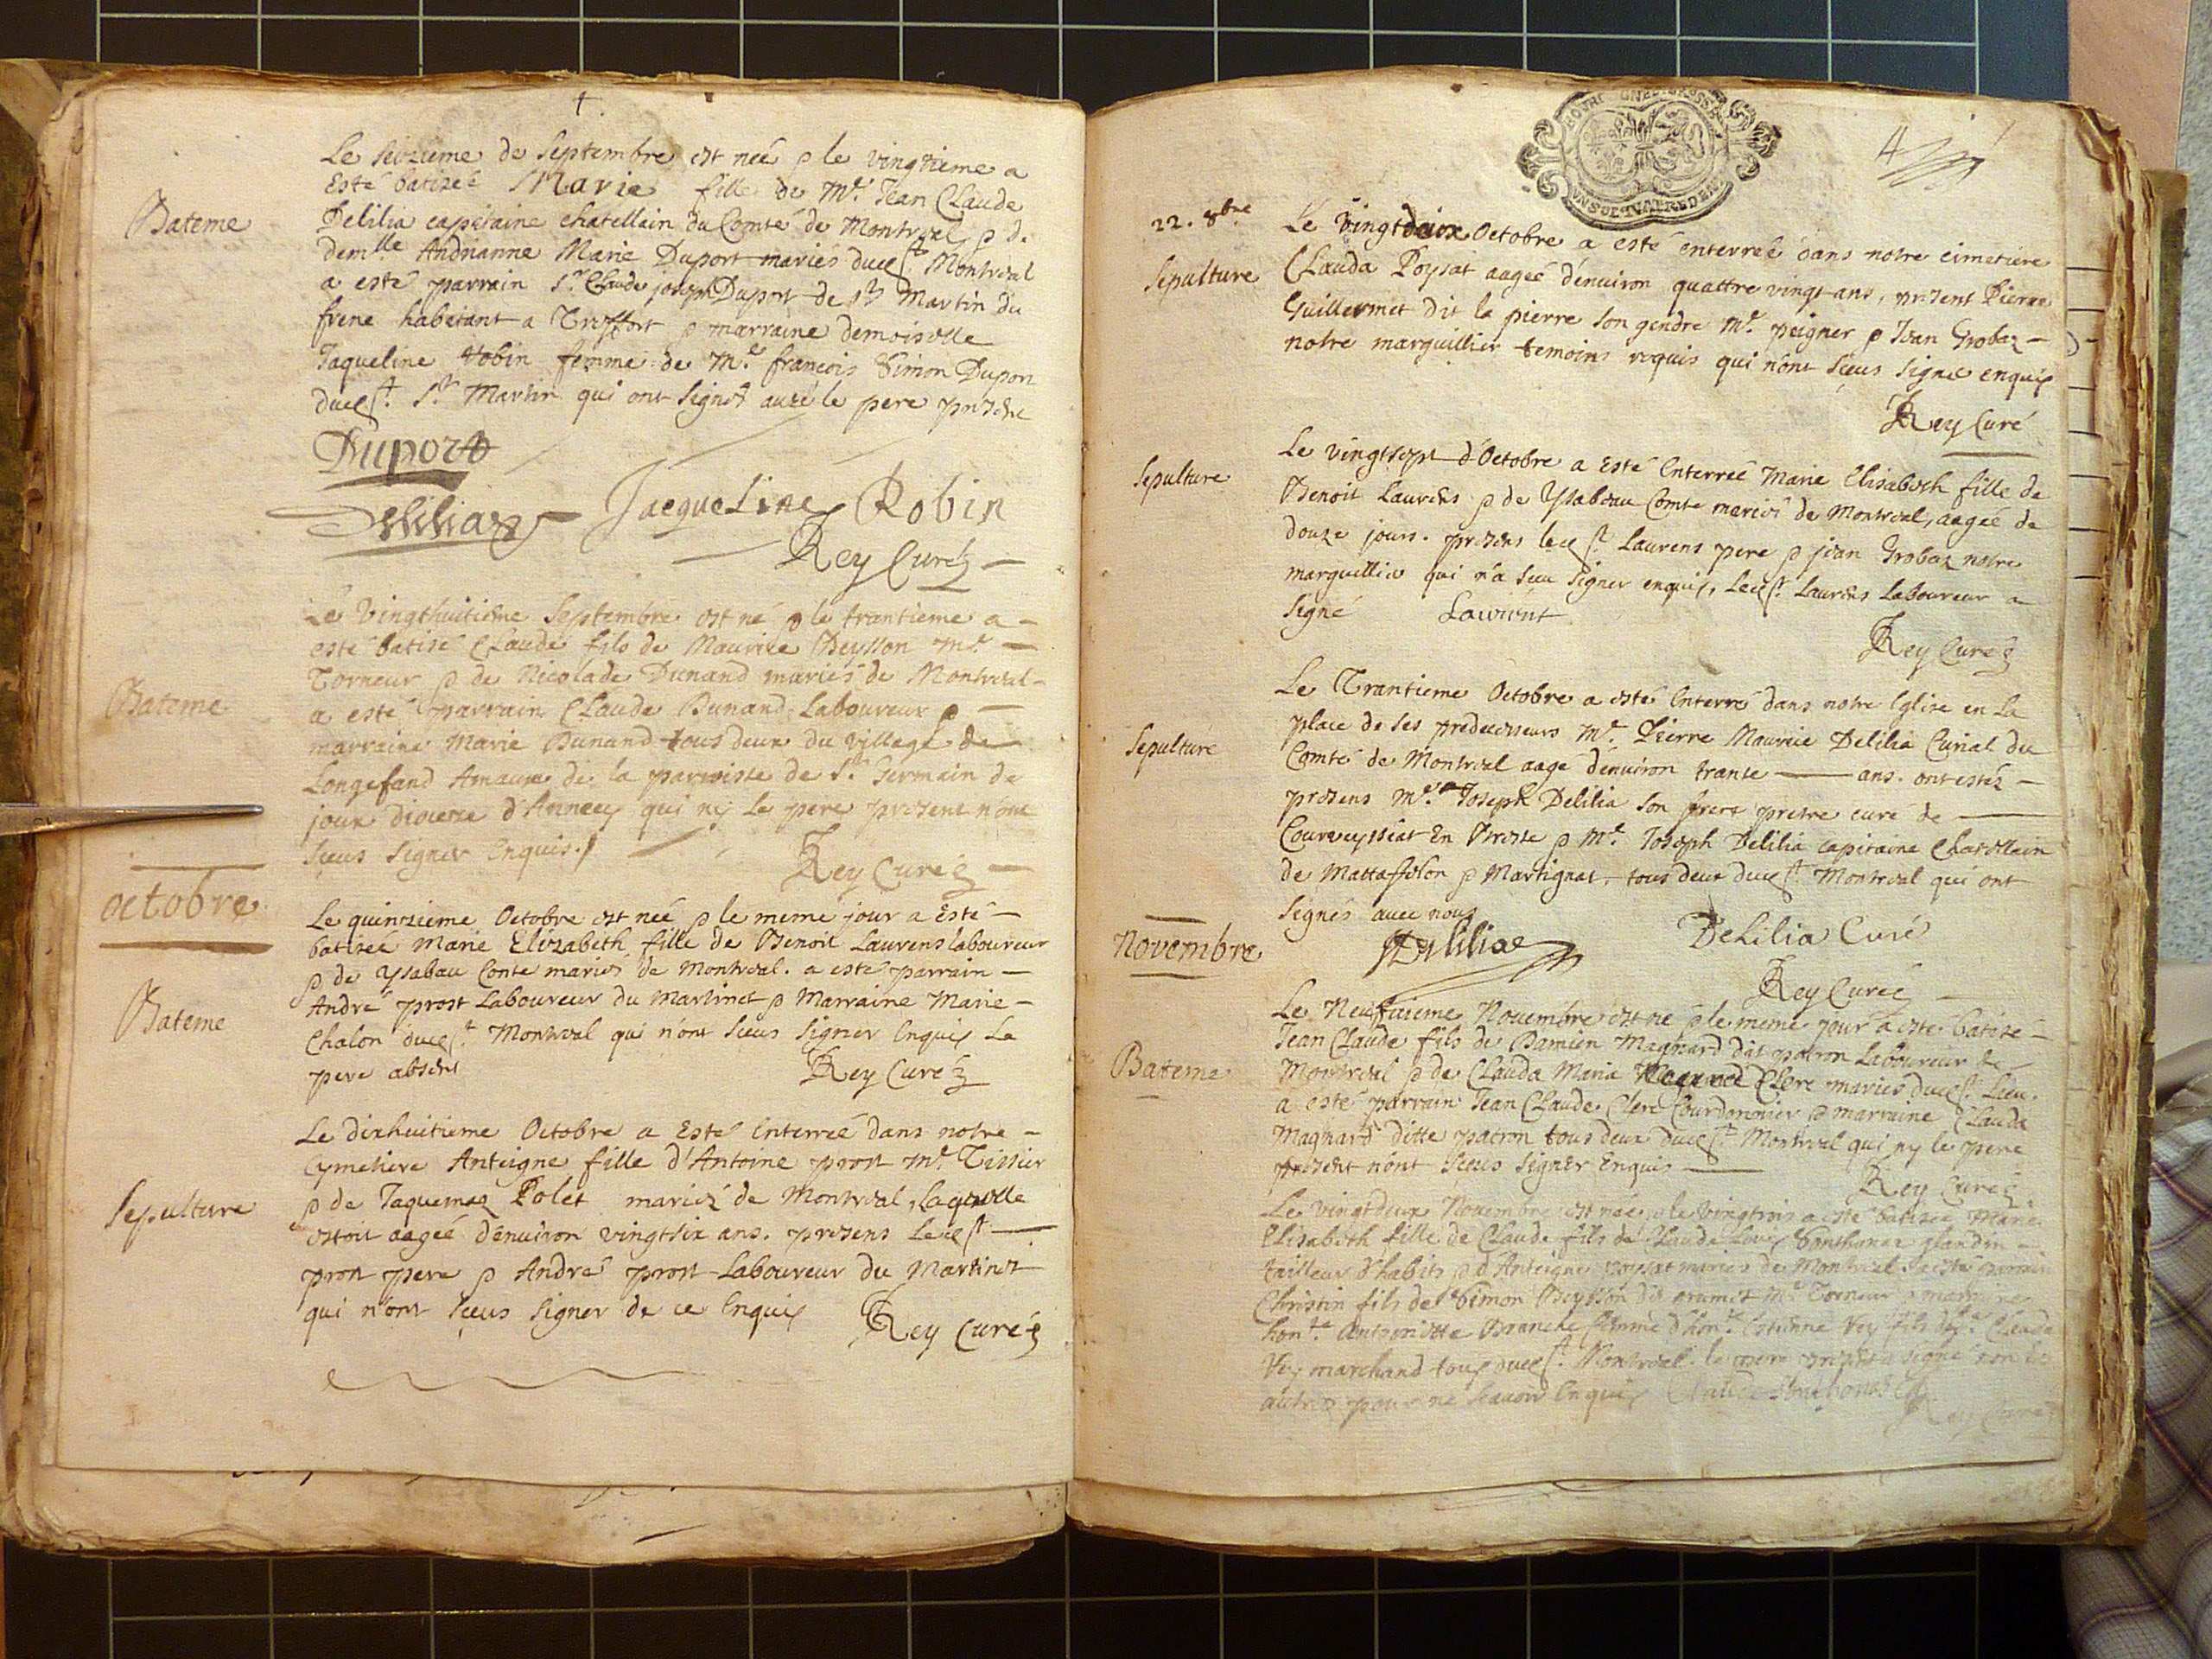 Bateme
Le seizieme de Septembre est neé & le vingtieme a
Esté batizeé Marie fille de Me. Jean Claude
Delilia capitaine chatellain du Comté de Montreal & d.
demlle Andrianne Marie Duport mariés dud. Montreal
a esté parrain Sr. Claude joseph Duport de St Martin du
frene habitant a Treffort & marraine demoiselle
Jaqueline Robin femme de Me. francois Simon Duport
dud. St Martin qui ont signéz avec le pere present
Duport
Delilia Jacqueline Robin
Rey Curé
Bateme
Le Vingthuitiéme Septembre est né & le trantieme a
esté batisé Claude fils de Maurice Beysson me.
Torneur & de Nicolade Dunand mariés de Montreal
a esté parrain Claude Bunand Laboureur &
marraine Marie Bunand tous deux du village de
Longefand de la parroisse de St. Germain de
joux diocese d'Annecy qui ny le pere present n'ont
sceus signer Enquis.
Rey Curé
octobre
Bateme
Le quinzieme Octobre est neé & le meme jour a Esté
batizeé Marie Elizabeth fille de Benoit Laurens laboureur
& de ysabau Conte mariés de Montreal. a esté parrain
André prost Laboureur du Martinet & Marraine Marie
Chalon dud. Montreal qui n'ont sceus signer Enquis Le
pere absent
Rey Curé
Sepulture
Le dixhuitieme Octobre a Esté Enterreé dans notre
Cymetiere Anteigne fille d'Antoine prost me. Tissier
& de Jaquemaz Polet mariéz de Montreal, Laquelle
estoit aageé d'enuiron vingtsix ans. presens Led.
prost pere & André prost Laboureur du Martinet
qui n'ont sceus signer de ce Enquis
Rey Curé
4
22. 8bre
Sepulture
Le Vingtdeux Octobre a esté enterreé dans notre cimetiere
Clauda Poysat aageé d'enuiron quattre vingt ans, present Pierre
Guillermet dit la pierre son gendre me. peigner & Jean Grobaz
notre marguillier temoins requis qui n'ont sceus signer enquis
Rey Curé
Sepulture
Le vingtsept d'Octobre a Esté Enterreé Marie Elisabeth fille de
Benoit Laurens & de Ysabeau Comte mariés de Montreal, aageé de
douze jours. presens led. Laurens pere & jean Grobaz notre
marguillier qui n'a sceu signer enquis, Led. Laurens Laboureur a
signé Laurent
Rey Curé
Sepulture
Le Trantieme Octobre a esté Enterré dans notre Eglise en La
place de ses predecesseurs Me. Pierre Maurice Delilia Curial du
Comté de Montreal aagé d'enuiron trante ans. ont estés
presens Joseph Delilia son frere pretre curé de
Courveyssiat En Bresse & Me. Joseph Delilia capitaine Chatellain
de Mattafelon & Martignat, tous deux dud. Montreal qui ont
signés avec nous
Delilia Delilia Curé
Rey Curé
Novembre
Bateme
Le Neufuieme Nouembre est né & le meme jour a esté batisé
Jean Claude fils de Damien Magnard dit patron Laboureur de
Montreal & de Clauda Maria Clerc mariés dud. Lieu.
a esté parrain Jean Claude Clerc Courdonnier & marraine Clauda
Magnard ditte patron tous deux dud. Montreal qui ny le pere
present n'ont sceus signer Enquis
Rey Curé
Le vingtdeux Nouembre est neé & le vingtrois a esté batisee Marie
Elisabeth fille de Claude fils de Claude
tailleur d'habits & d'Anteigne poysat mariés de Montreal. a esté parrain
Christin fils de Simon Beysson dit me. Torneur & marraine
hon.te femme d'hon.e Estienne Vey fils Claude
Vey marchand tous dud. Montreal. le pere a signé non les
autres pour ne scauoir Enquis
Rey Curé